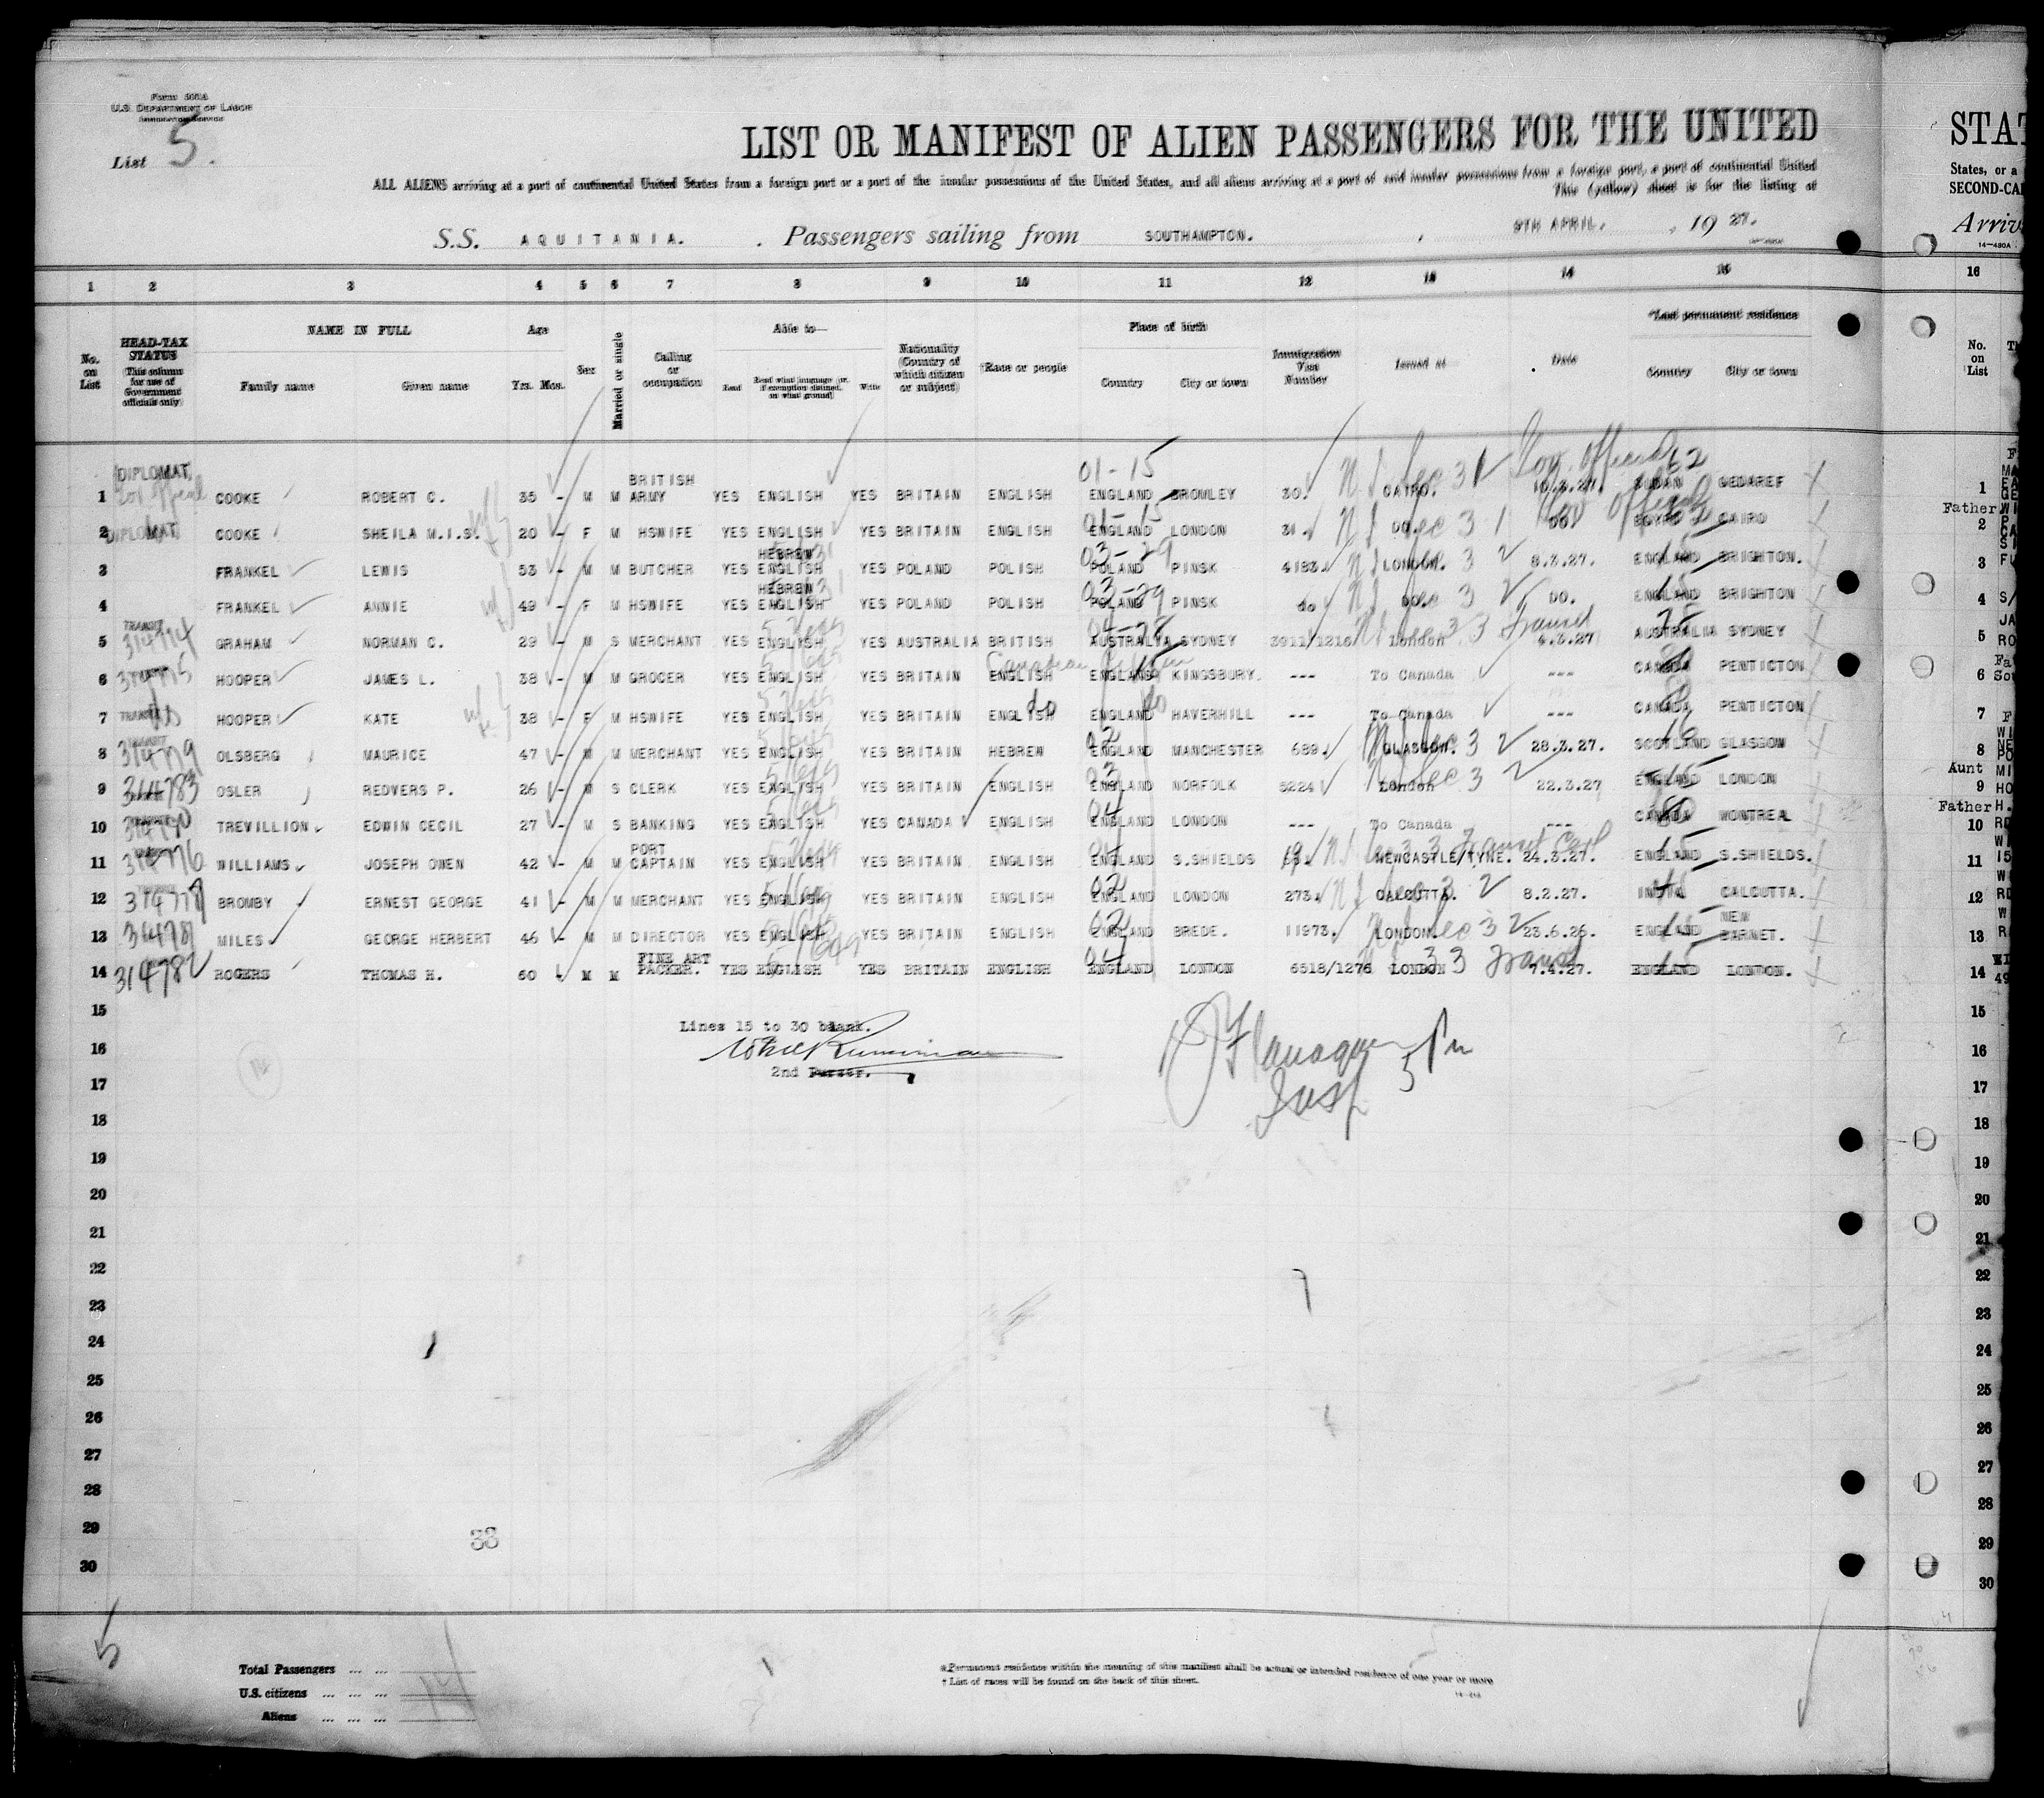 Form 500A
U.S. DEPARTMENT OF LABOR
IMMIGRATION SERVICE
List 5.
LIST OR MANIFEST OF ALIEN PASSENGERS FOR THE UNITED
STAT
ALL ALIENS arriving at a port of continental United States from a foreign port or a port of the insular possessions of the United States, and all aliens arriving at a port of said insular possessions from a foreign port, a port of continental United
States, or a
This (yellow) sheet is for the listing of
SECOND-CA
S.S. AQUITANIA. . Passengers sailing from SOUTHAMPTON. , 9TH APRIL. , 19 27.
Arriv
14—480A
1 2 3 4 5 6 7 8 9 10 11 12 13 14 15 16
No. on List
HEAD-TAX STATUS (This column for use of Government officials only)
NAME IN FULL Family name Given name
Age Yrs. Mos.
Sex
Married or single
Calling or occupation
Able to— Read Read what language (or, if exemption claimed, on what ground) Write
Nationality (Country of which citizen or subject)
†Race or people
Place of birth Country City or town
Immigration Visa Number
Issued at
Date
*Last permanent residence Country City or town
No. on List
DIPLOMAT. 01-15 N I Sec 3 1 Gov. Official 62
1 COOKE ROBERT C. 35 - M M BRITISH ARMY YES ENGLISH YES BRITAIN ENGLISH ENGLAND BROMLEY 30. CAIRO. 10.3.27. SUDAN GEDAREF 1
Father
2 DIPLOMAT. COOKE SHEILA M.I.S. 20 - F M HSWIFE YES ENGLISH YES BRITAIN ENGLISH ENGLAND LONDON 31. DO. DO. EGYPT CAIRO 2
3 FRANKEL LEWIS 53 - M M BUTCHER YES HEBREW ENGLISH YES POLAND POLISH POLAND PINSK 4183. LONDON. 8.3.27. ENGLAND BRIGHTON. 3
4 FRANKEL ANNIE 49 - F M HSWIFE YES HEBREW ENGLISH YES POLAND POLISH POLAND PINSK do DO. DO. ENGLAND BRIGHTON 4
5 TRANSIT 314774 GRAHAM NORMAN C. 29 - M S MERCHANT YES ENGLISH YES AUSTRALIA BRITISH AUSTRALIA SYDNEY 3911/1216 London 4.3.27 AUSTRALIA SYDNEY 5
6 314775 HOOPER JAMES L. 38 - M M GROCER YES ENGLISH YES BRITAIN ENGLISH ENGLAND KINGSBURY. --- To Canada --- CANADA PENTICTON 6
7 TRANSIT HOOPER KATE 38 - F M HSWIFE YES ENGLISH YES BRITAIN ENGLISH do ENGLAND do HAVERHILL --- To Canada --- CANADA PENTICTON 7
8 314779 OLSBERG MAURICE 47 - M M MERCHANT YES ENGLISH YES BRITAIN HEBREW ENGLAND MANCHESTER 689. GLASGOW. 28.3.27. SCOTLAND GLASGOW 8
Aunt
9 314783 OSLER REDVERS P. 26 - M S CLERK YES ENGLISH YES BRITAIN ENGLISH ENGLAND NORFOLK 5224 London 22.3.27 ENGLAND LONDON 9
Father
10 TREVILLION EDWIN CECIL 27 - M S BANKING YES ENGLISH YES CANADA ENGLISH ENGLAND LONDON --- To Canada --- CANADA MONTREAL 10
11 314776 WILLIAMS JOSEPH OWEN 42 - M M PORT CAPTAIN YES ENGLISH YES BRITAIN ENGLISH ENGLAND S.SHIELDS NEWCASTLE/TYNE. 24.3.27. ENGLAND S.SHIELDS. 11
12 314778 BROMBY ERNEST GEORGE 41 - M M MERCHANT YES ENGLISH YES BRITAIN ENGLISH ENGLAND LONDON 273. CALCUTTA. 8.2.27. INDIA CALCUTTA. 12
13 314781 MILES GEORGE HERBERT 46 - M M DIRECTOR YES ENGLISH YES BRITAIN ENGLISH ENGLAND BREDE. 11973. LONDON. 23.6.26. ENGLAND NEW BARNET. 13
14 314782 ROGERS THOMAS H. 60 M M FINE ART PACKER. YES ENGLISH YES BRITAIN ENGLISH ENGLAND LONDON 6518/1276 LONDON 7.4.27. ENGLAND LONDON. 14
15 15
Lines 15 to 30 blank.
16 Flanagan 16
17 2nd Purser. Insp 17
18 18
19 19
20 20
21 21
22 22
23 23
24 24
25 25
26 26
27 27
28 28
29 29
33
30 30
Total Passengers ... ...
U.S. citizens ... ... ... 14
Aliens ... ... ...
*Permanent residence within the meaning of this manifest shall be actual or intended residence of one year or more
† List of races will be found on the back of this sheet.